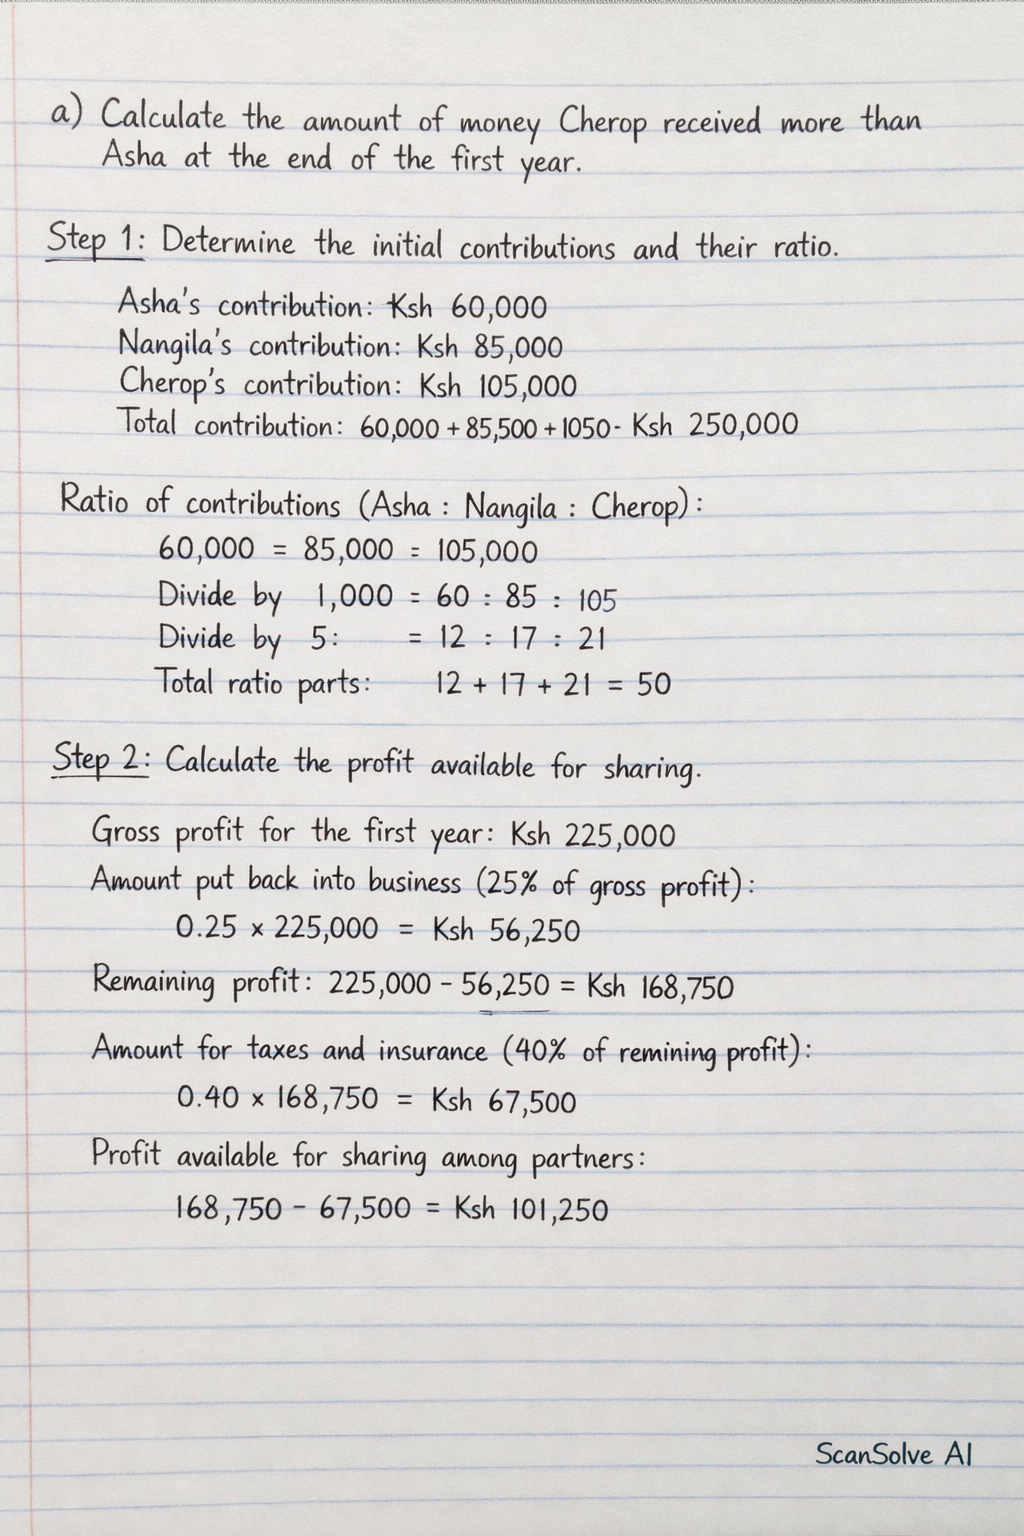 a) Calculate the amount of money Cherop received more than
Asha at the end of the first year.
Step 1: Determine the initial contributions and their ratio.
Asha's contribution: Ksh 60,000
Nangila's contribution: Ksh 85,000
Cherop's contribution: Ksh 105,000
Total contribution: 60,000 + 85,500 + 1050- Ksh 250,000
Ratio of contributions (Asha : Nangila : Cherop):
60,000 = 85,000 = 105,000
Divide by 1,000 = 60 : 85 : 105
Divide by 5: = 12 : 17 : 21
Total ratio parts: 12 + 17 + 21 = 50
Step 2: Calculate the profit available for sharing.
Gross profit for the first year: Ksh 225,000
Amount put back into business (25% of gross profit):
0.25 × 225,000 = Ksh 56,250
Remaining profit: 225,000 - 56,250 = Ksh 168,750
Amount for taxes and insurance (40% of remining profit):
0.40 × 168,750 = Ksh 67,500
Profit available for sharing among partners:
168,750 - 67,500 = Ksh 101,250
ScanSolve AI